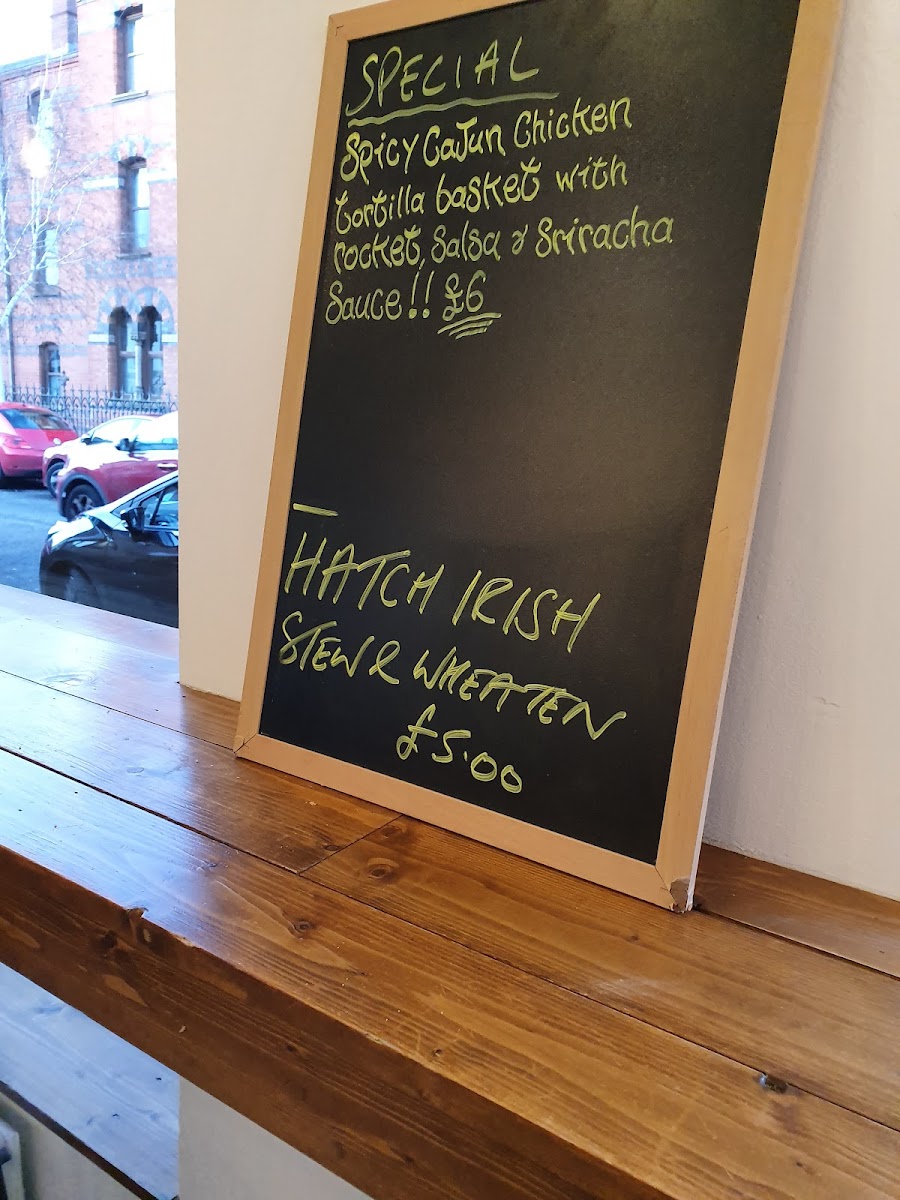 SPECIAL
Spicy Cajun Chicken
tortilla basket with
rocket, Salsa & Sriracha
Sauce!! £6
HATCH IRISH
STEW & WHEATEN
£5.00